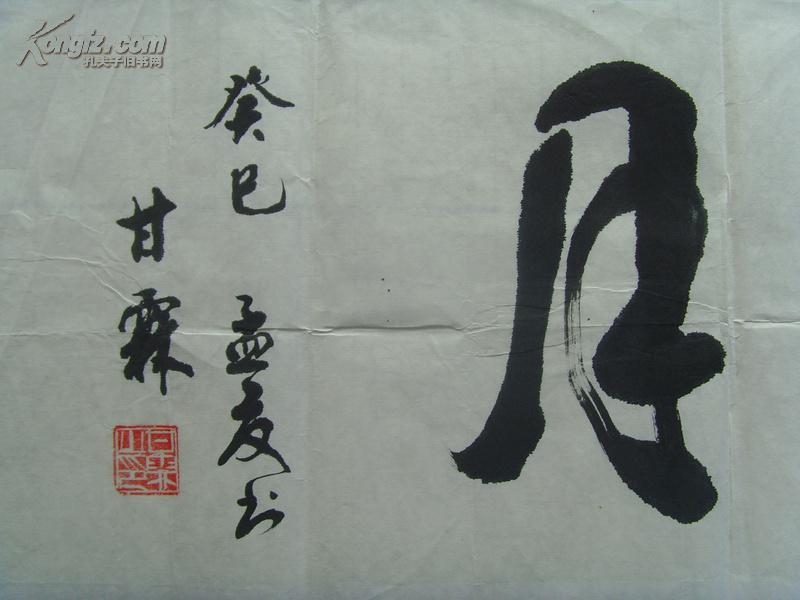 Kongfz.com
孔夫子旧书网
月
癸巳 孟夏书
甘霖